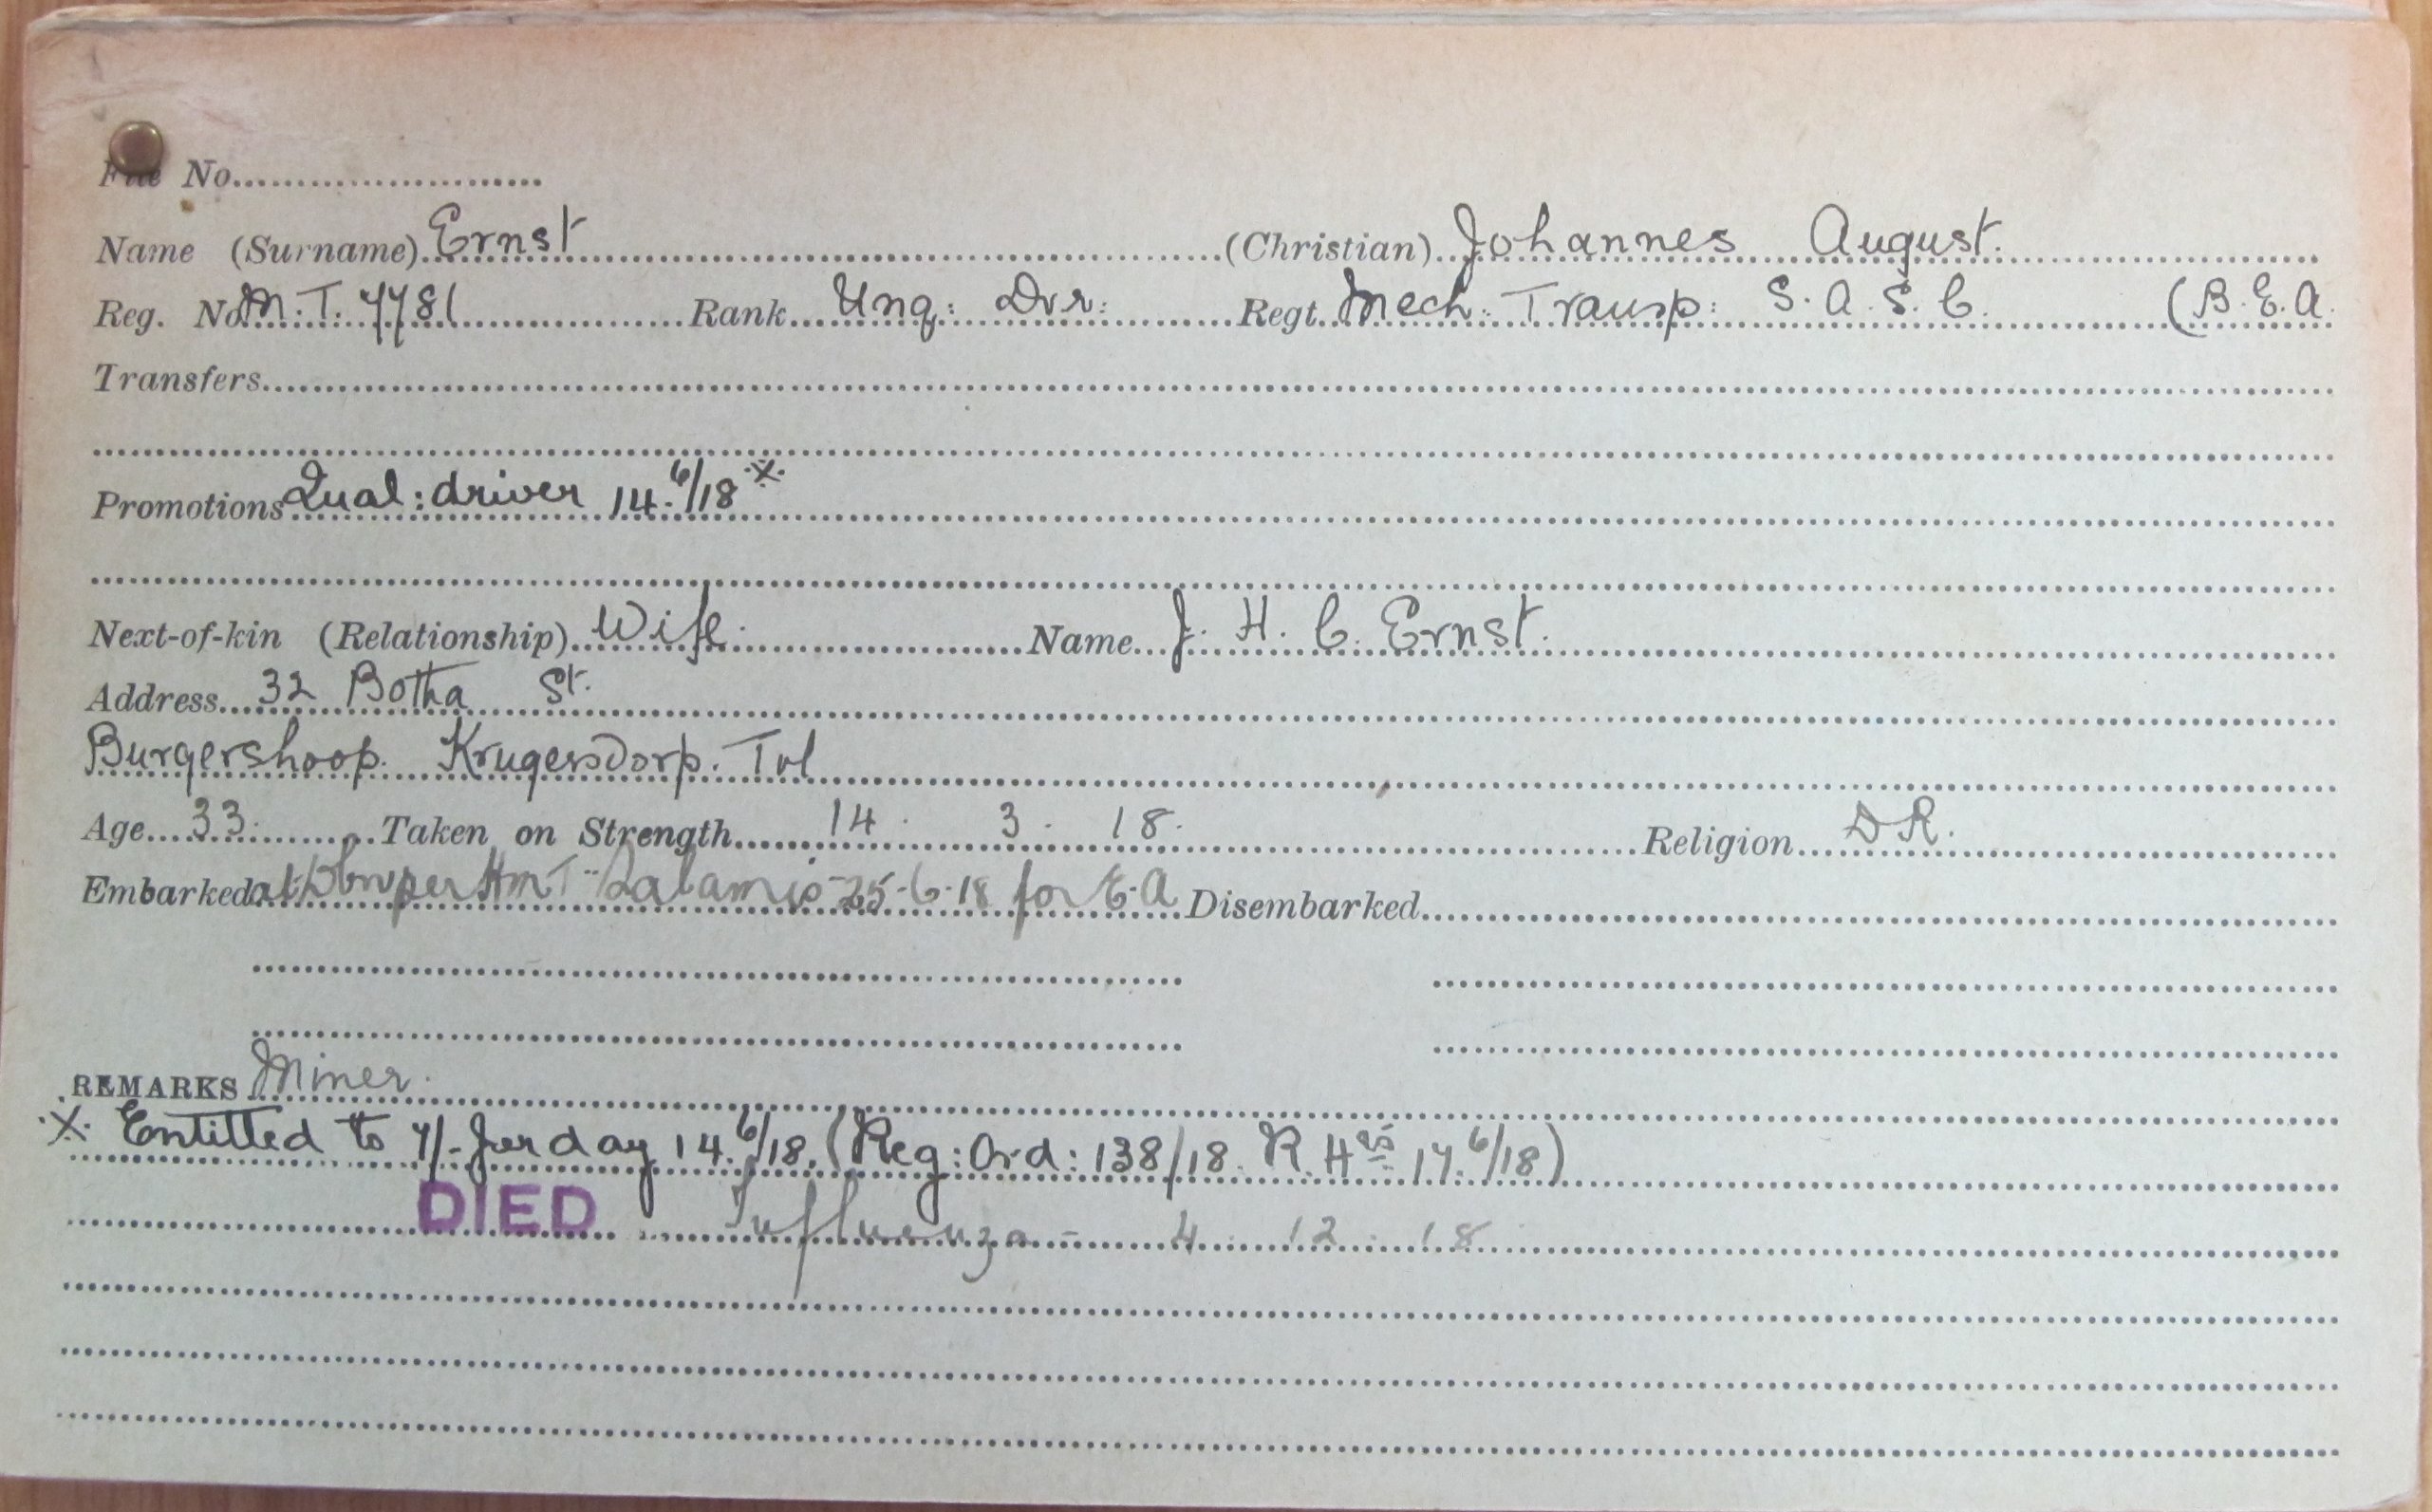 File No.
Name (Surname) Ernst (Christian) Johannes August.
Reg. No. M.T. 7781 Rank Unq: Dvr: Regt. Mech: Transp: S.A.S.C. (B.E.A.
Transfers
Promotions Qual: driver 14.6/18 X
Next-of-kin (Relationship) Wife. Name J. H. C. Ernst.
Address 32 Botha St.
Burgershoop. Krugersdorp. Tvl
Age 33. Taken on Strength 14. 3. 18. Religion DR.
Embarked at Dbn per HMT "Salamis" 25-6-18 for E.A Disembarked
REMARKS Miner.
X Entitled to 7/- per day 14.6/18. (Reg: Ord: 138/18. R. Hqrs 17.6/18)
DIED Influenza - 4 . 12 . 18